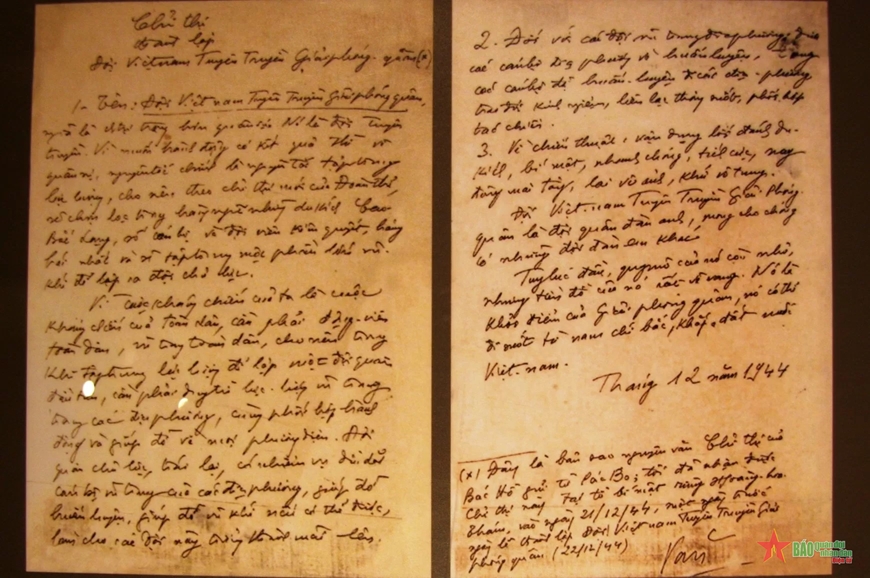 Chỉ thị
thành lập
Đội Việt nam Tuyên Truyền Giải phóng quân (x)
1- Tên: Đội Việt nam Tuyên Truyền Giải phóng quân,
nghĩa là chính trị trọng hơn quân sự. Nó là đội tuyên
truyền. Vì muốn hành động có kết quả thì về
quân sự, nguyên tắc chính là nguyên tắc tập trung
lực lượng, cho nên, theo chỉ thị mới của Đoàn thể,
sẽ chọn lọc trong hàng ngũ những du kích Cao
Bắc Lạng, số cán bộ và đội viên kiên quyết, hăng
hái nhất và sẽ tập trung một phần lớn vũ
khí để lập ra đội chủ lực.
Vì cuộc kháng chiến của ta là cuộc
kháng chiến của toàn dân, cần phải động viên
toàn dân, vũ trang toàn dân, cho nên trong
khi tập trung lực lượng để lập một đội quân
đầu tiên, cần phải duy trì lực lượng vũ trang
trong các địa phương, cùng phối hợp hành
động và giúp đỡ về mọi phương diện. Đội
quân chủ lực, trái lại, có nhiệm vụ dìu dắt
cán bộ vũ trang của các địa phương, giúp đỡ
huấn luyện, giúp đỡ vũ khí nếu có thể được,
làm cho các đội này trưởng thành mãi lên.
2. Đối với các đội vũ trang địa phương: đưa
các cán bộ địa phương về huấn luyện, tung
các cán bộ đã huấn luyện đi các địa phương
trao đổi kinh nghiệm, liên lạc thông suốt, phối hợp
tác chiến.
3. Về chiến thuật: vận dụng lối đánh du
kích, bí mật, nhanh chóng, tích cực, nay
đông mai tây, lai vô ảnh, khứ vô tung.
Đội Việt nam Tuyên Truyền Giải Phóng
quân là đội quân đàn anh, mong cho chóng
có những đội đàn em khác.
Tuy lúc đầu, quy mô của nó còn nhỏ,
nhưng tiền đồ của nó rất vẻ vang. Nó là
khởi điểm của Giải phóng quân, nó có thể
đi suốt từ nam chí bắc, khắp đất nước
Việt-nam.
Tháng 12 năm 1944
(x) Đây là bản sao nguyên văn Chỉ thị của
Bác Hồ gửi từ Pác Bó; tôi đã nhận được
Chỉ thị này tại tổ bí mật rừng Hoàng-hoa-
Thám, vào ngày 21/12/44, một ngày trước
ngày lễ thành lập Đội Việt nam Tuyên Truyền Giải
phóng quân (22/12/44)
Văn
BÁO